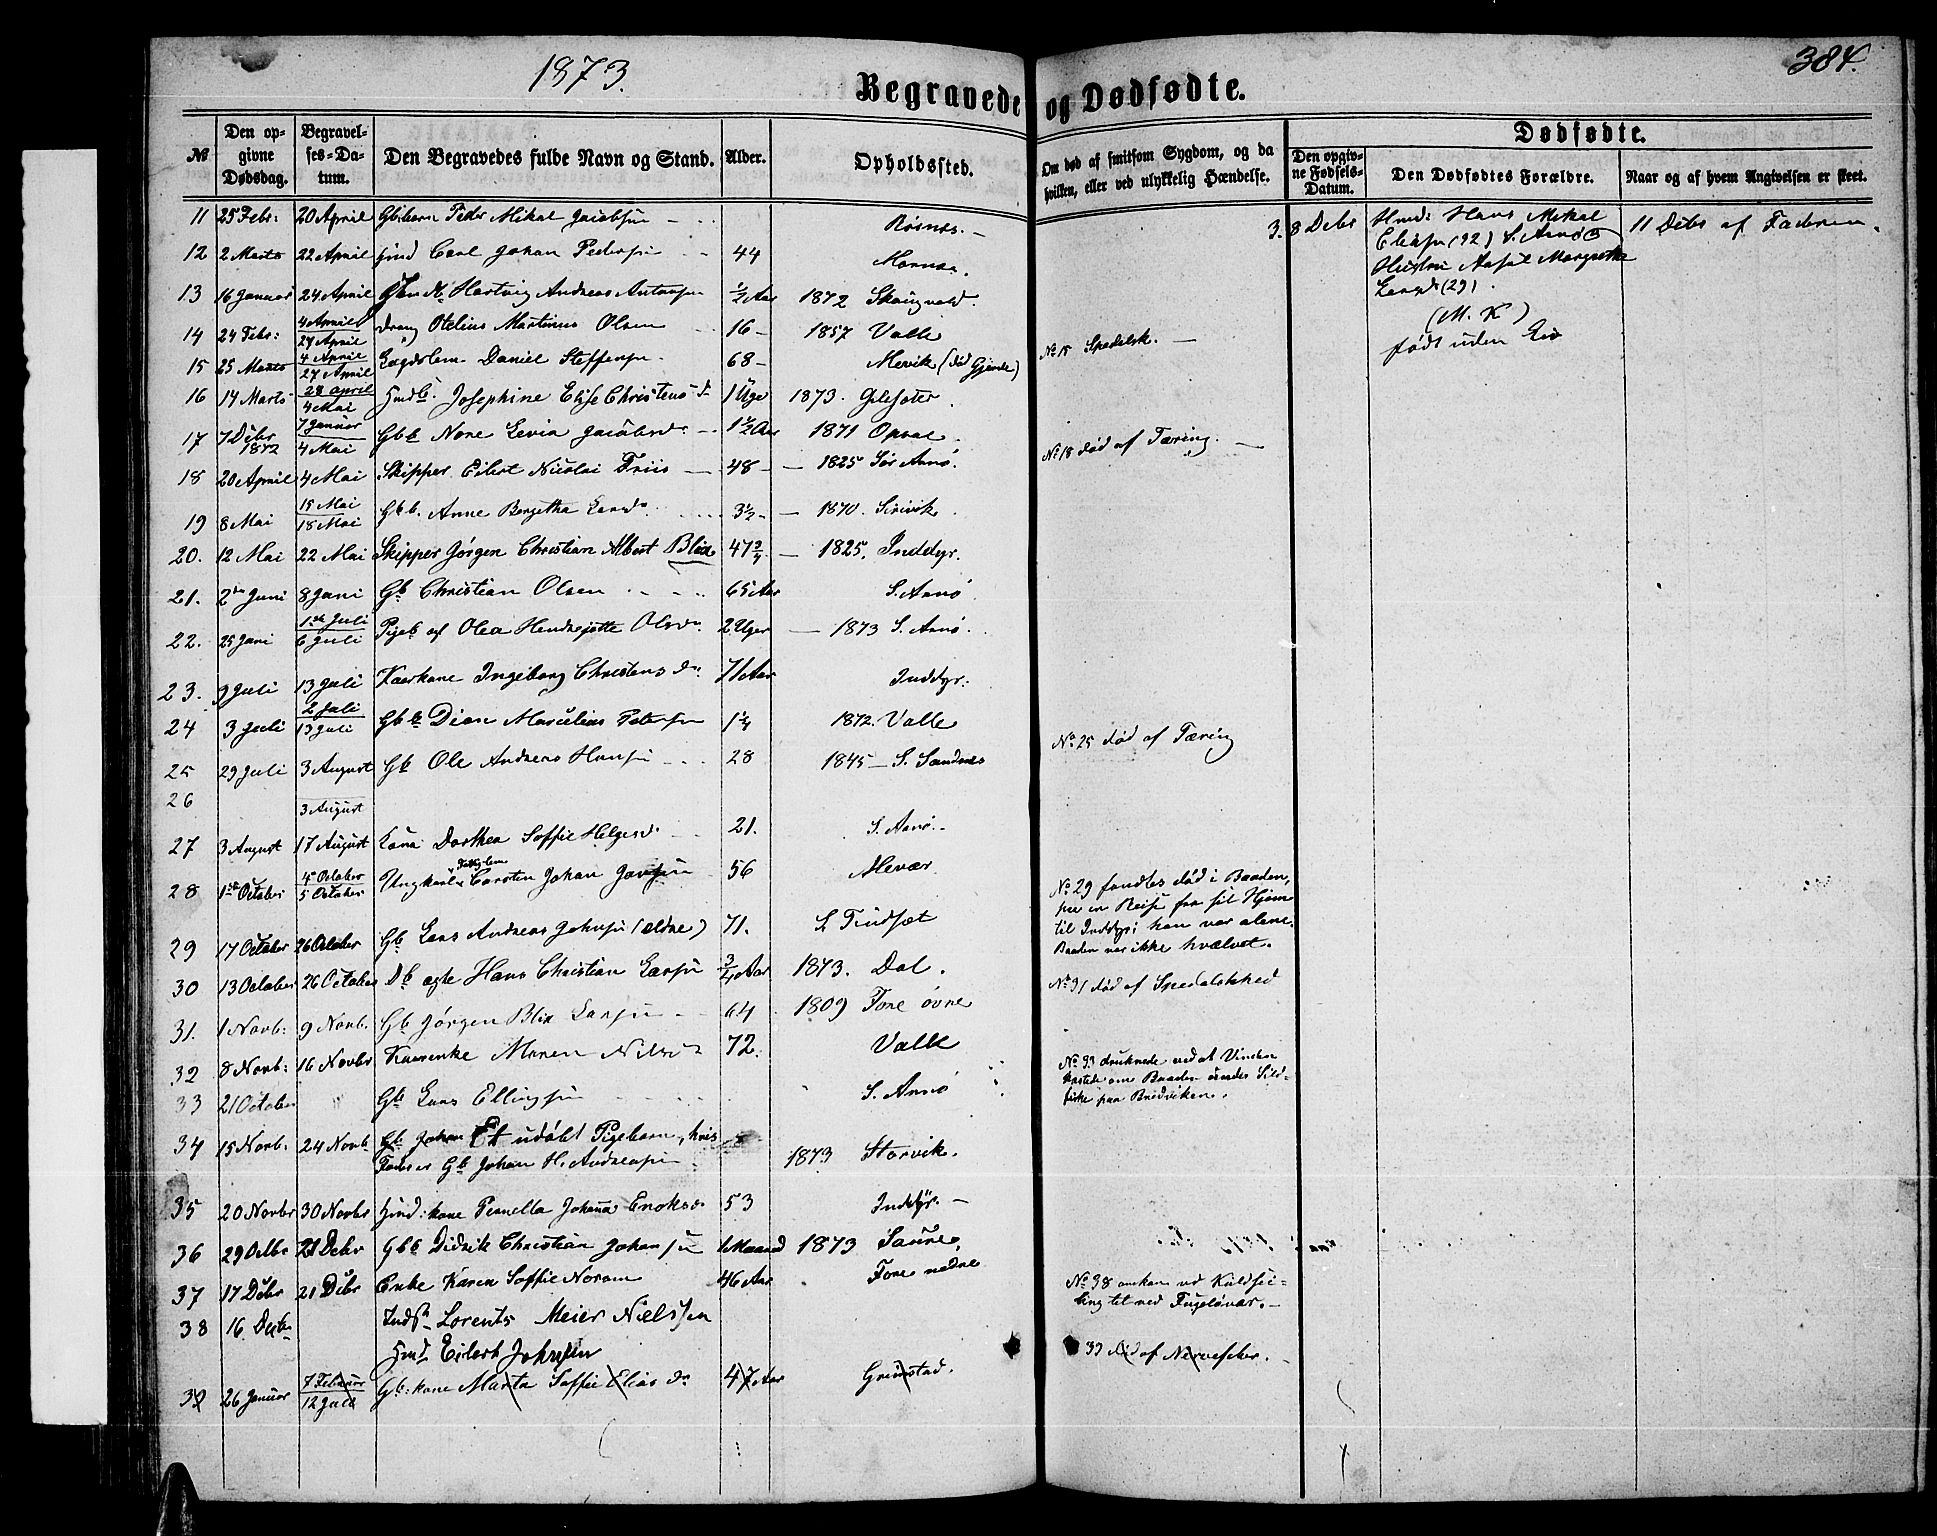 1873.
Begravede og Dødfødte.
384.
№
Den opgivne Dødsdag.
Begravelses-Datum.
Den Begravedes fulde Navn og Stand.
Alder.
Opholdssted.
Om død af smitsom Sygdom, og da hvilken, eller ved ulykkelig Hændelse.
Dødfødte.
Den opgivne Fødsels-Datum.
Den Dødfødtes Forældre.
Naar og af hvem Angivelsen er skeet.
11 25 Febr: 20 April Gbbarn Peder Mikal Jacobsen Røsnes.
12 2 Marts 22 April Hmd Carl Johan Pedersen 44
13 16 Januar 24 April Hartvig Andreas 1/2 Aar 1872 Skaugvold.
14 24 Febr: 4 April 27 April Dreng Otelius Martinus Olsen 16 1857 Valle
15 25 Marts 4 April 27 April Lægdslem Daniel Steffensen 68 Mevik (død Gjerde) No 15 Spedalsk.
16 14 Marts 28 april 4 Mai Josephine Elise Christensd 1 Uge 1873. Gilsæter.
17 7 Debr 1872 7 Januar 4 Mai Gbb Nore Levia Jacobsd 1 1/2 Aar 1871 Opsal.
18 20 April 4 Mai Skipper Eilert Nicolai Friis 48 1825 Sør Arnø. No 18 død af Tæring.
19 8 Mai 15 Mai 18 Mai Gbb. Anne Bergetha Larsd 3 1/2 1870.
20. 12 Mai 22 Mai Skipper Jørgen Christian Albert Blix 47 3/4 1825. Inddyr.
21. 2den Juni 8 Juni Gb Christian Olsen 65 Aar S. Arnø
22. 25 Juni 1ste Juli 6 Juli Pigeb af Olea Olsd 2 Uger 1873 S. Arnø.
23. 9 Juli 13 Juli Kaarkone Ingeborg Christensd 71 Aar Inddyr.
24 3 Juli 2 Juli 13 Juli Gbb Marselius Petersen 1 1/4 1872. Valle
25 29 Juli 3 August Gb Ole Andreas Hansen 28 1845 S. Sandnes No 25 død af Tæring
26
27 3 August 3 August 17 August Kone Dorthea Soffie Helgesd 21. S. Arnø.
28 1ste October 4 October 5 October Ungkarl Carsten Johan Jensen 56 Alevær
29 17 October 26 October Gb Lars Andreas Johnsen (ældre) 71. L Tindsæt
No 29 fandtes død i Baaden,
paa en Reise fra sit Hjem
til Inddyr; han var alene.
Baaden var ikke hvælvet.
30 13 October 26 October Db ægte Hans Christian Larsen 3/4 Aar 1873. Dal.
31. 1 Novb: 9 Novb. Gb Jørgen Blix Larsen 64 1809 Fore øvre No 31 død af Spedalskhed
32 8 Novb: 16 Novbr Kaarenke Maren Nilsd 72. Valle
33 21 October Gb Lars Ellingsen S. Arnø
No 33 druknede ved at Vinden
kastede om Baaden under Sild-
fiske paa Bredviken.
34 15 Novb: 24 Novb Gb Johan Et udøbt Pigebarn, hvis
Fader er Gb Johan H. Andreasen 1873 Storvik.
35 20 Novbr 30 Novbr Hmd: kone Pernella Johanna Enoksd 53 Inddyr.
36 29 Octbr 21 Debr Gbb Didrik Christian Johansen 1 Maaned 1873 Saura
37 17 Debr 21 Debr Enke Karen Soffie Norum 46 Aar Fore nedre
38 16 Decbr Inds. Lorents Meier Nielssen
Hmd Eilert Johnsen
No 38 omkom ved Kuldseiling
tet ved Fugløvær.
39 26 Januar 7 Februar 12 Juli Gb: kone Marta Soffie Eliasd 47 Aar Grimstad. 39 død af Nervefeber.
3. 8 Debr Hmd: Hans Mikal
S. Arnø
Hustru Margrethe
Larsd (29).
(M. K)
født uden Liv
11 Debr af Faderen.